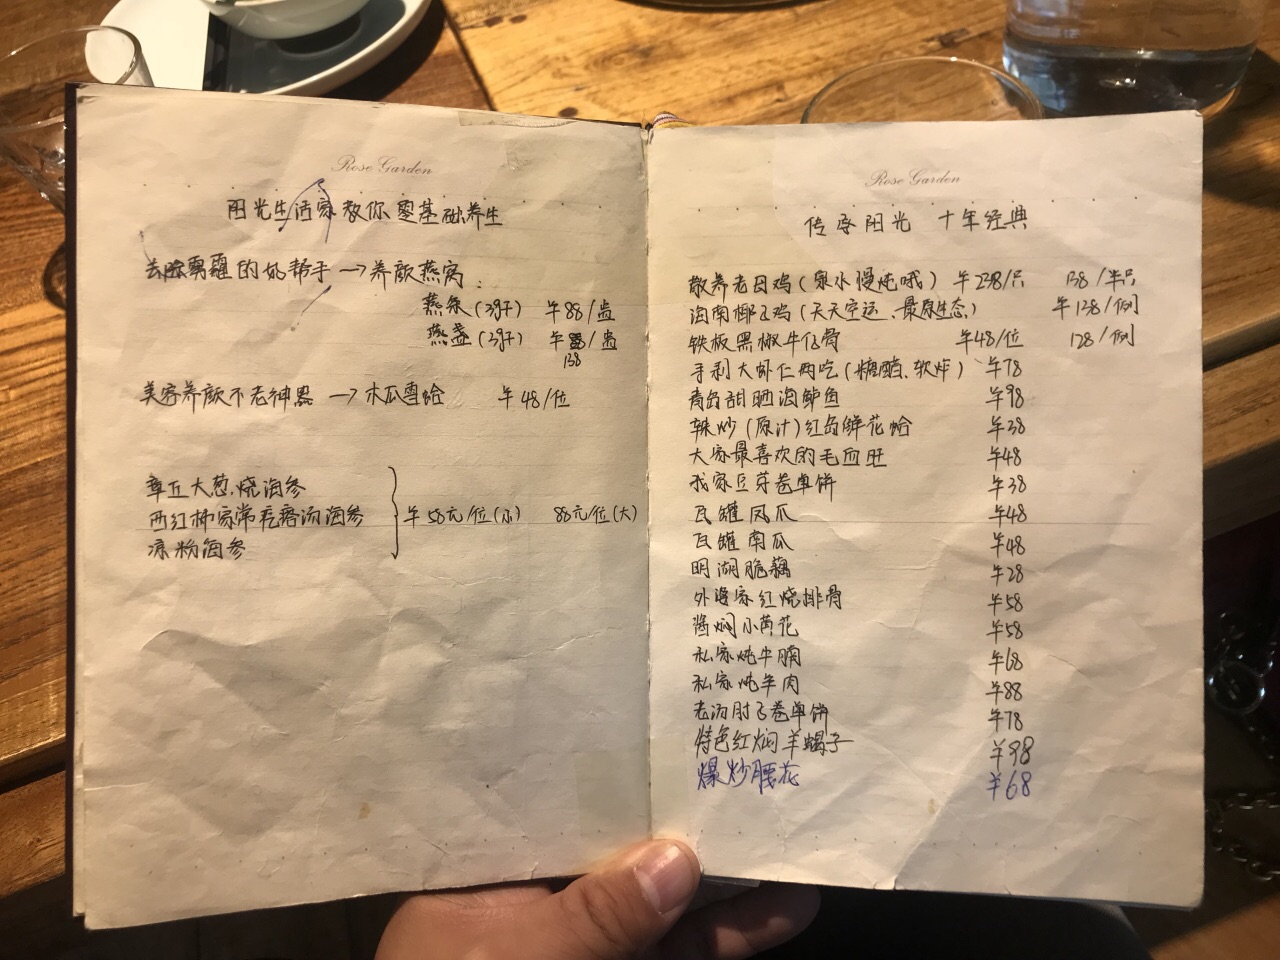 Rose Garden
阳光生活家教你零基础养生
去除雾霾的好帮手→养颜燕窝:
燕条(3g干) ¥88/盅
燕盏(3g干) ¥ /盅
138
美容养颜不老神器→木瓜雪哈 ¥48/位
章丘大葱.烧海参
西红柿家常疙瘩汤海参 ¥58元/位(小) 88元/位(大)
凉粉海参
Rose Garden
传承阳光 十年经典
散养老母鸡(泉水慢炖哦) ¥238/只 138/半只
海南椰子鸡(天天空运、最原生态) ¥138/例
铁板黑椒牛仔骨 ¥48/位 128/例
手剥大虾仁两吃(糖醋、软炸) ¥78
青岛甜晒海鲈鱼 ¥98
辣炒(原汁)红岛鲜花蛤 ¥38
大家最喜欢的毛血旺 ¥48
我家豆芽卷单饼 ¥38
瓦罐凤爪 ¥48
瓦罐南瓜 ¥48
明湖脆藕 ¥28
外婆家红烧排骨 ¥58
酱焖小黄花 ¥58
私家炖牛腩 ¥68
私家炖羊肉 ¥88
老汤肘子卷单饼 ¥78
特色红焖羊蝎子 ¥98
爆炒腰花 ¥68